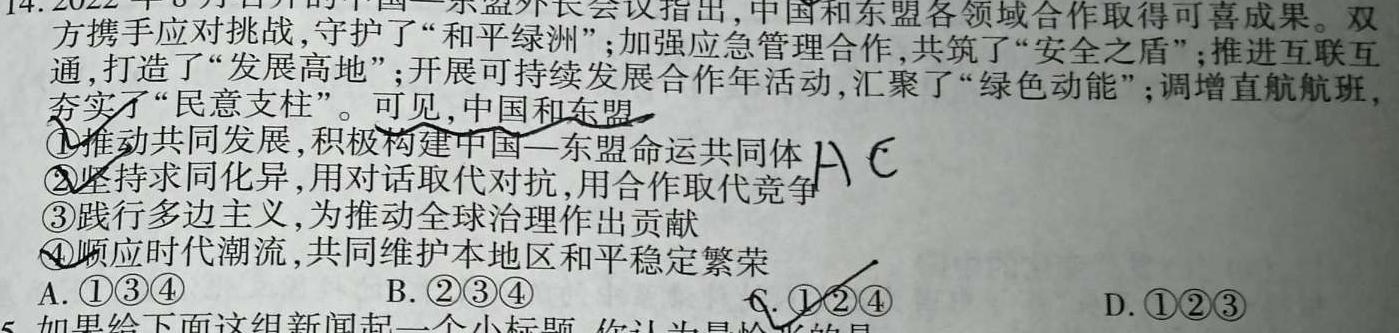 14. 2022年8月召开的中国—东盟外长会议指出,中国和东盟各领域合作取得可喜成果。双
方携手应对挑战,守护了“和平绿洲”;加强应急管理合作,共筑了“安全之盾”;推进互联互
通,打造了“发展高地”;开展可持续发展合作年活动,汇聚了“绿色动能”;调增直航航班,
夯实了“民意支柱”。可见,中国和东盟
①推动共同发展,积极构建中国—东盟命运共同体
AC
②坚持求同化异,用对话取代对抗,用合作取代竞争
③践行多边主义,为推动全球治理作出贡献
④顺应时代潮流,共同维护本地区和平稳定繁荣
A. ①③④ B. ②③④ C. ①②④ D. ①②③
5. 如果给下面这组新闻起一个小标题,你认为最恰当的是